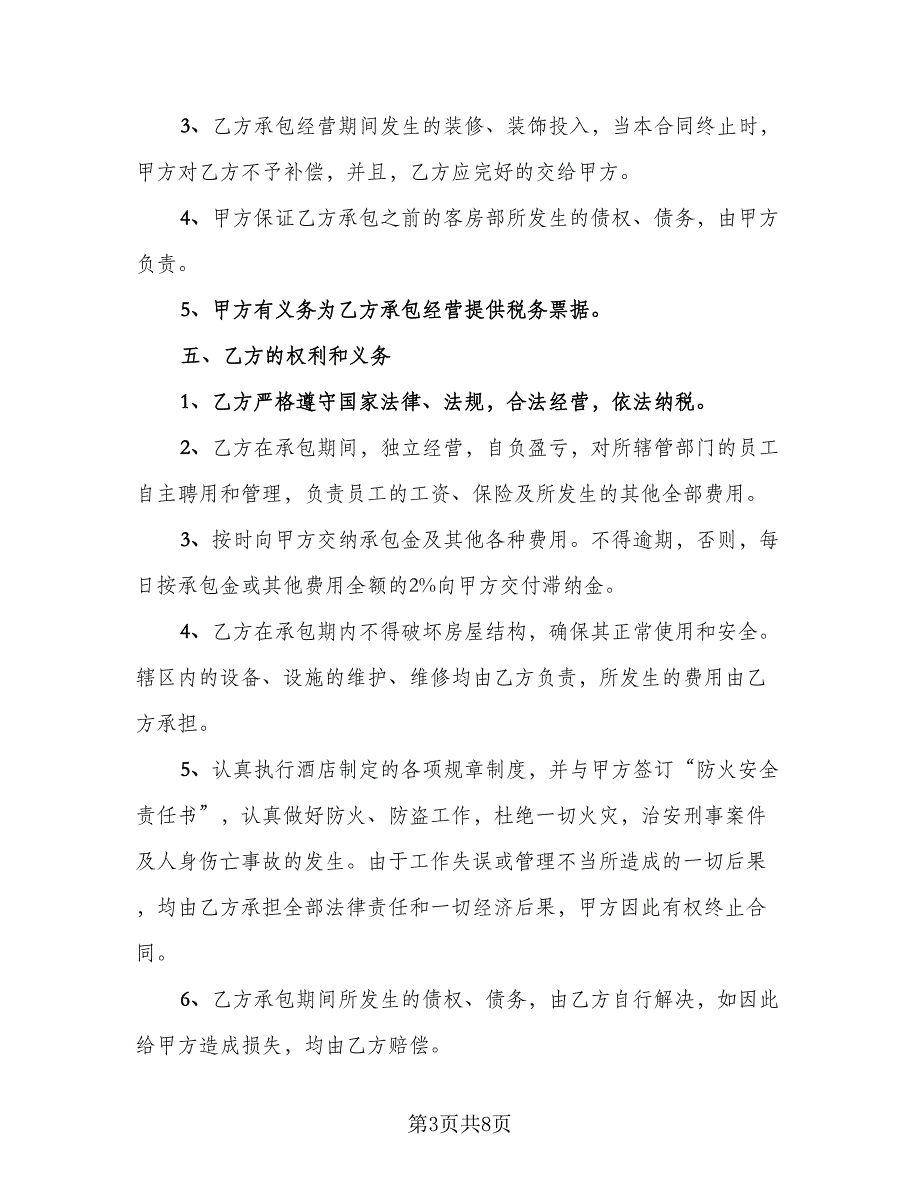 3、乙方承包经营期间发生的装修、装饰投入，当本合同终止时，
甲方对乙方不予补偿，并且，乙方应完好的交给甲方。
4、甲方保证乙方承包之前的客房部所发生的债权、债务，由甲方
负责。
5、甲方有义务为乙方承包经营提供税务票据。
五、乙方的权利和义务
1、乙方严格遵守国家法律、法规，合法经营，依法纳税。
2、乙方在承包期间，独立经营，自负盈亏，对所辖管部门的员工
自主聘用和管理，负责员工的工资、保险及所发生的其他全部费用。
3、按时向甲方交纳承包金及其他各种费用。不得逾期，否则，每
日按承包金或其他费用全额的2%向甲方交付滞纳金。
4、乙方在承包期内不得破坏房屋结构，确保其正常使用和安全。
辖区内的设备、设施的维护、维修均由乙方负责，所发生的费用由乙
方承担。
5、认真执行酒店制定的各项规章制度，并与甲方签订“防火安全
责任书”，认真做好防火、防盗工作，杜绝一切火灾，治安刑事案件
及人身伤亡事故的发生。由于工作失误或管理不当所造成的一切后果
，均由乙方承担全部法律责任和一切经济后果，甲方因此有权终止合
同。
6、乙方承包期间所发生的债权、债务，由乙方自行解决，如因此
给甲方造成损失，均由乙方赔偿。
第3页共8页